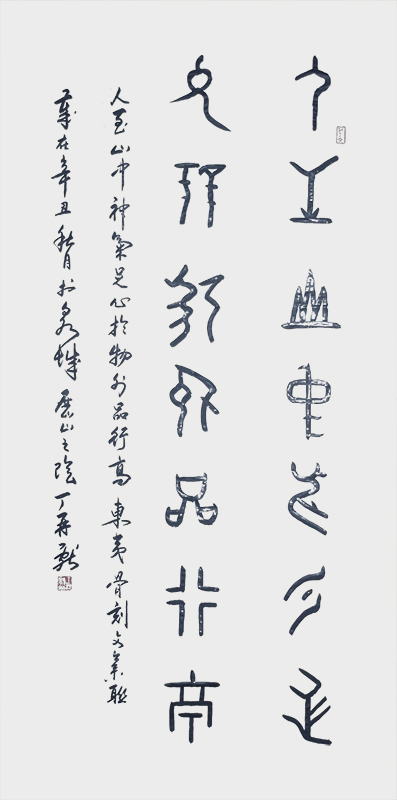 人至山中神气足
心於物外品行高
人至山中神氣足心於物外品行高 東夷骨刻文集聯
歲在辛丑秋月於泉城歷山之陰丁再獻